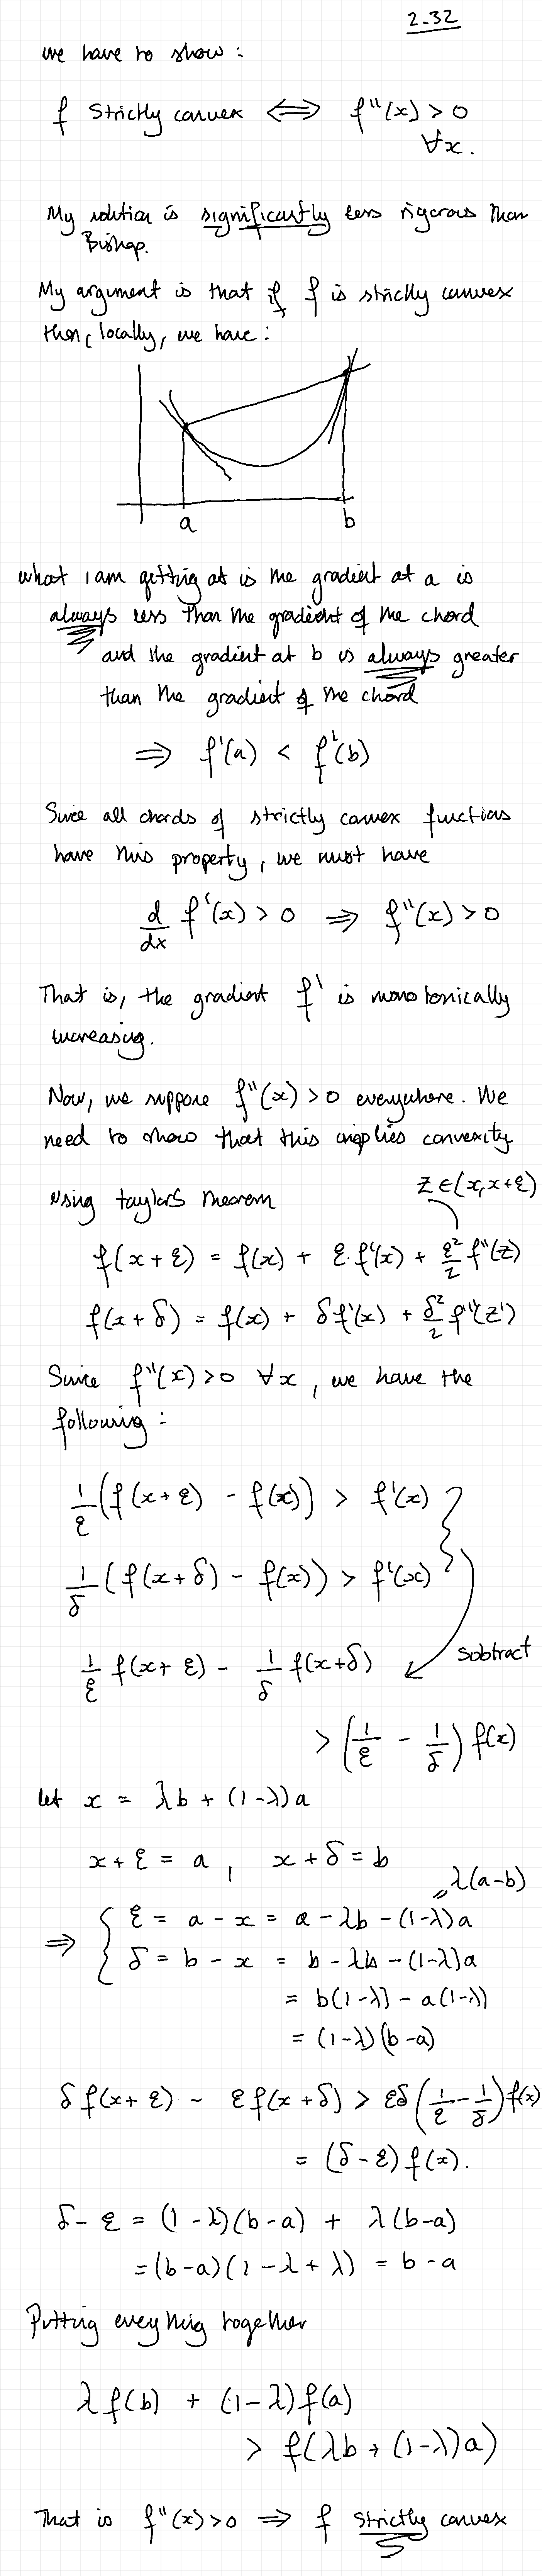 2.32
we have to show :
f strictly convex ⟺ f''(x) > 0
∀x.
My solution is significantly less rigorous than
Bishop.
My argument is that if f is strictly convex
then, locally, we have :
a b
what I am getting at is the gradient at a is
always less than the gradient of the chord
and the gradient at b is always greater
than the gradient of the chord
⇒ f'(a) < f'(b)
Since all chords of strictly convex functions
have this property, we must have
d/dx f'(x) > 0 ⇒ f''(x) > 0
That is, the gradient f' is monotonically
increasing.
Now, we suppose f''(x) > 0 everywhere. We
need to show that this implies convexity
using taylor's theorem
z ∈ (x, x+ε)
f(x+ε) = f(x) + ε f'(x) + ε²/2 f''(z)
f(x+δ) = f(x) + δ f'(x) + δ²/2 f''(z')
Since f''(x) > 0 ∀x, we have the
following :
1/ε (f(x+ε) - f(x)) > f'(x)
1/δ (f(x+δ) - f(x)) > f'(x)
subtract
1/ε f(x+ε) - 1/δ f(x+δ)
> (1/ε - 1/δ) f(x)
let x = λb + (1-λ)a
x + ε = a , x + δ = b
= λ(a-b)
⇒ { ε = a - x = a - λb - (1-λ)a
δ = b - x = b - λb - (1-λ)a
= b(1-λ) - a(1-λ)
= (1-λ)(b-a)
δ f(x+ε) - ε f(x+δ) > εδ (1/ε - 1/δ) f(x)
= (δ-ε) f(x).
δ - ε = (1-λ)(b-a) + λ(b-a)
= (b-a)(1-λ+λ) = b-a
Putting everything together
λ f(b) + (1-λ) f(a)
> f(λb + (1-λ)a)
That is f''(x) > 0 ⇒ f strictly convex